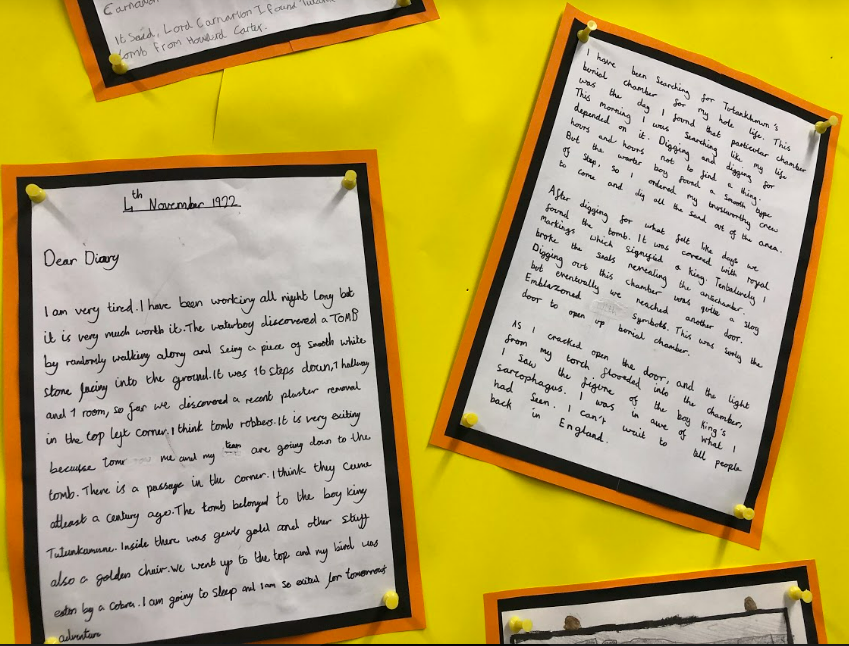 Carnarvon
It Said, Lord Carnarvon I found
tomb From Howard Carter.
4th November 1922
Dear Diary
I am very tired. I have been working all night long but
it is very much worth it. The waterboy discovered a TOMB
by randomly walking along and seing a piece of smooth white
stone facing into the ground. It was 16 steps down, 1 hallway
and 1 room, so far we discovered a recent plaster removal
in the top left corner. I think tomb robbers. It is very exiting
because me and my team are going down to the
tomb. There is a passage in the corner. I think they came
atleast a century ago. The tomb belonged to the boy king
Tutunkamune. Inside there was gewls gold and other stuff
also a golden chair. we went up to the top and my bird was
eaten by a cobra. I am going to sleep and I am so exited for tomorrows
adventure
I have been searching for Totankhamun's
burial chamber for my hole life. This
was the day I found that particular chamber
This morning I was searching like my life
depended on it. Digging and digging for
hours and hours not to find a thing.
But the worter boy found a smooth type
of step, so I ordered my trustworthy crew
to come and dig all the sand out of the area.
After digging for what felt like days we
found the tomb. It was covered with royal
markings which signified a king. Tentatively I
broke the seals revealing the
Digging out this chamber was quite a slog
but eventually we reached another door.
Emblazoned symbols. This was surly the
door to open up borial chamber.
As I cracked open the door, and the light
from my torch, flooded into the chamber,
I saw the figure of the boy King's
sarcophagus. I was in awe of what I
had seen. I can't wait to tell people
back in England.